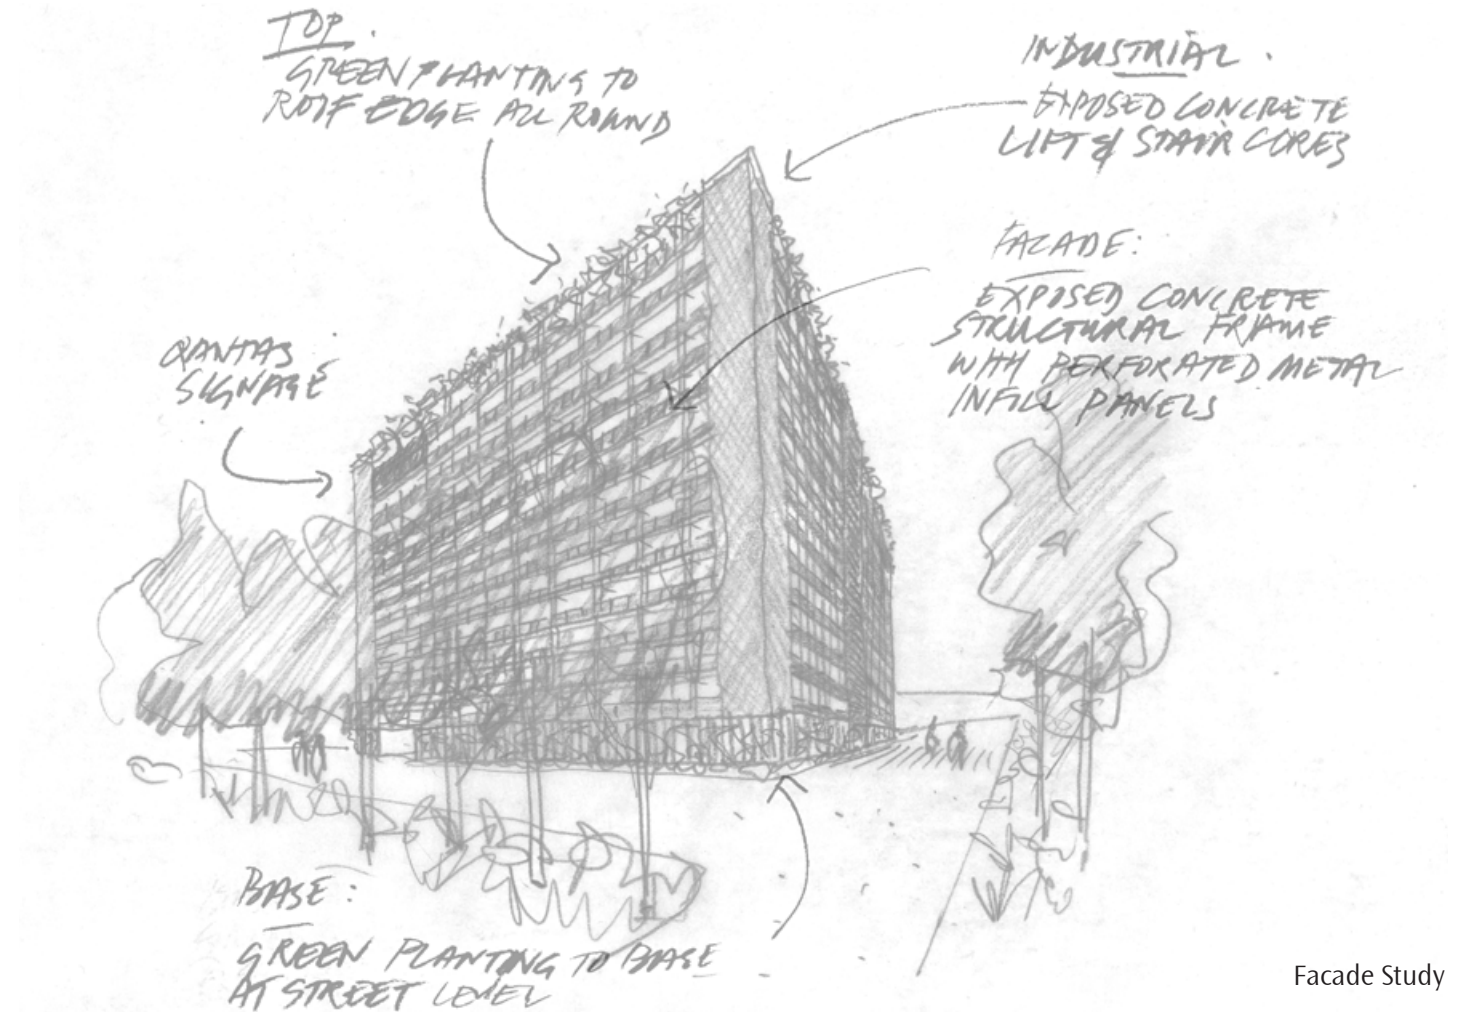 TOP.
GREEN PLANTING TO
ROOF EDGE ALL ROUND
INDUSTRIAL.
EXPOSED CONCRETE
LIFT & STAIR CORES
FACADE:
EXPOSED CONCRETE
STRUCTURAL FRAME
WITH PERFORATED METAL
INFILL PANELS
QANTAS
SIGNAGE
BASE:
GREEN PLANTING TO BASE
AT STREET LEVEL
Facade Study